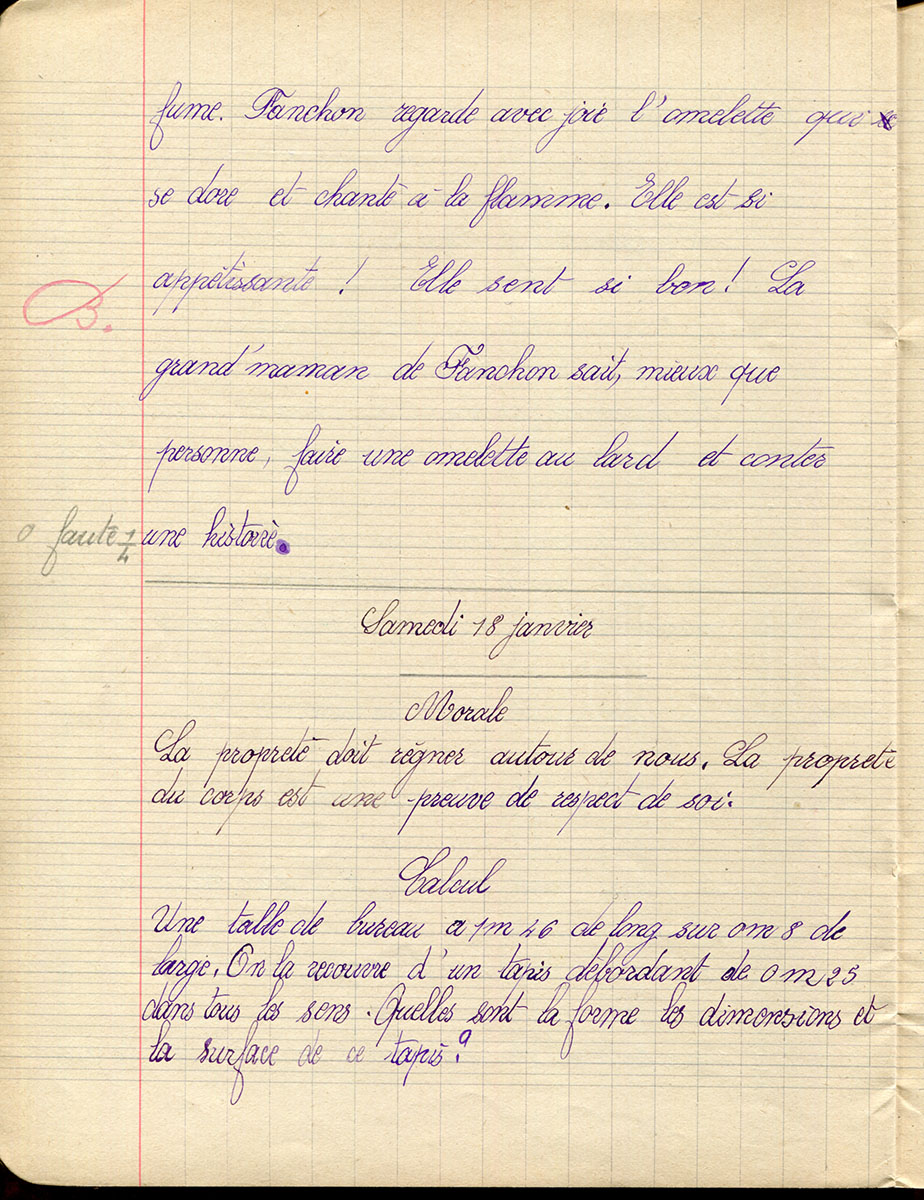 fume. Fanchon regarde avec joie l'omelette qui
se dore et chante à la flamme. Elle est si
appétissante ! Elle sent si bon ! La
B.
grand'maman de Fanchon sait, mieux que
personne, faire une omelette au lard et conter
0 faute 1/4
une histoire.
Samedi 18 janvier
Morale
La propreté doit règner autour de nous. La propreté
du corps est une preuve de respect de soi.
Calcul
Une talle de bureau a 1m 46 de long sur 0m 8 de
large. On la recouvre d'un tapis débordant de 0m25
dans tous les sens. Quelles sont la forme les dimensions et
la surface de ce tapis ?